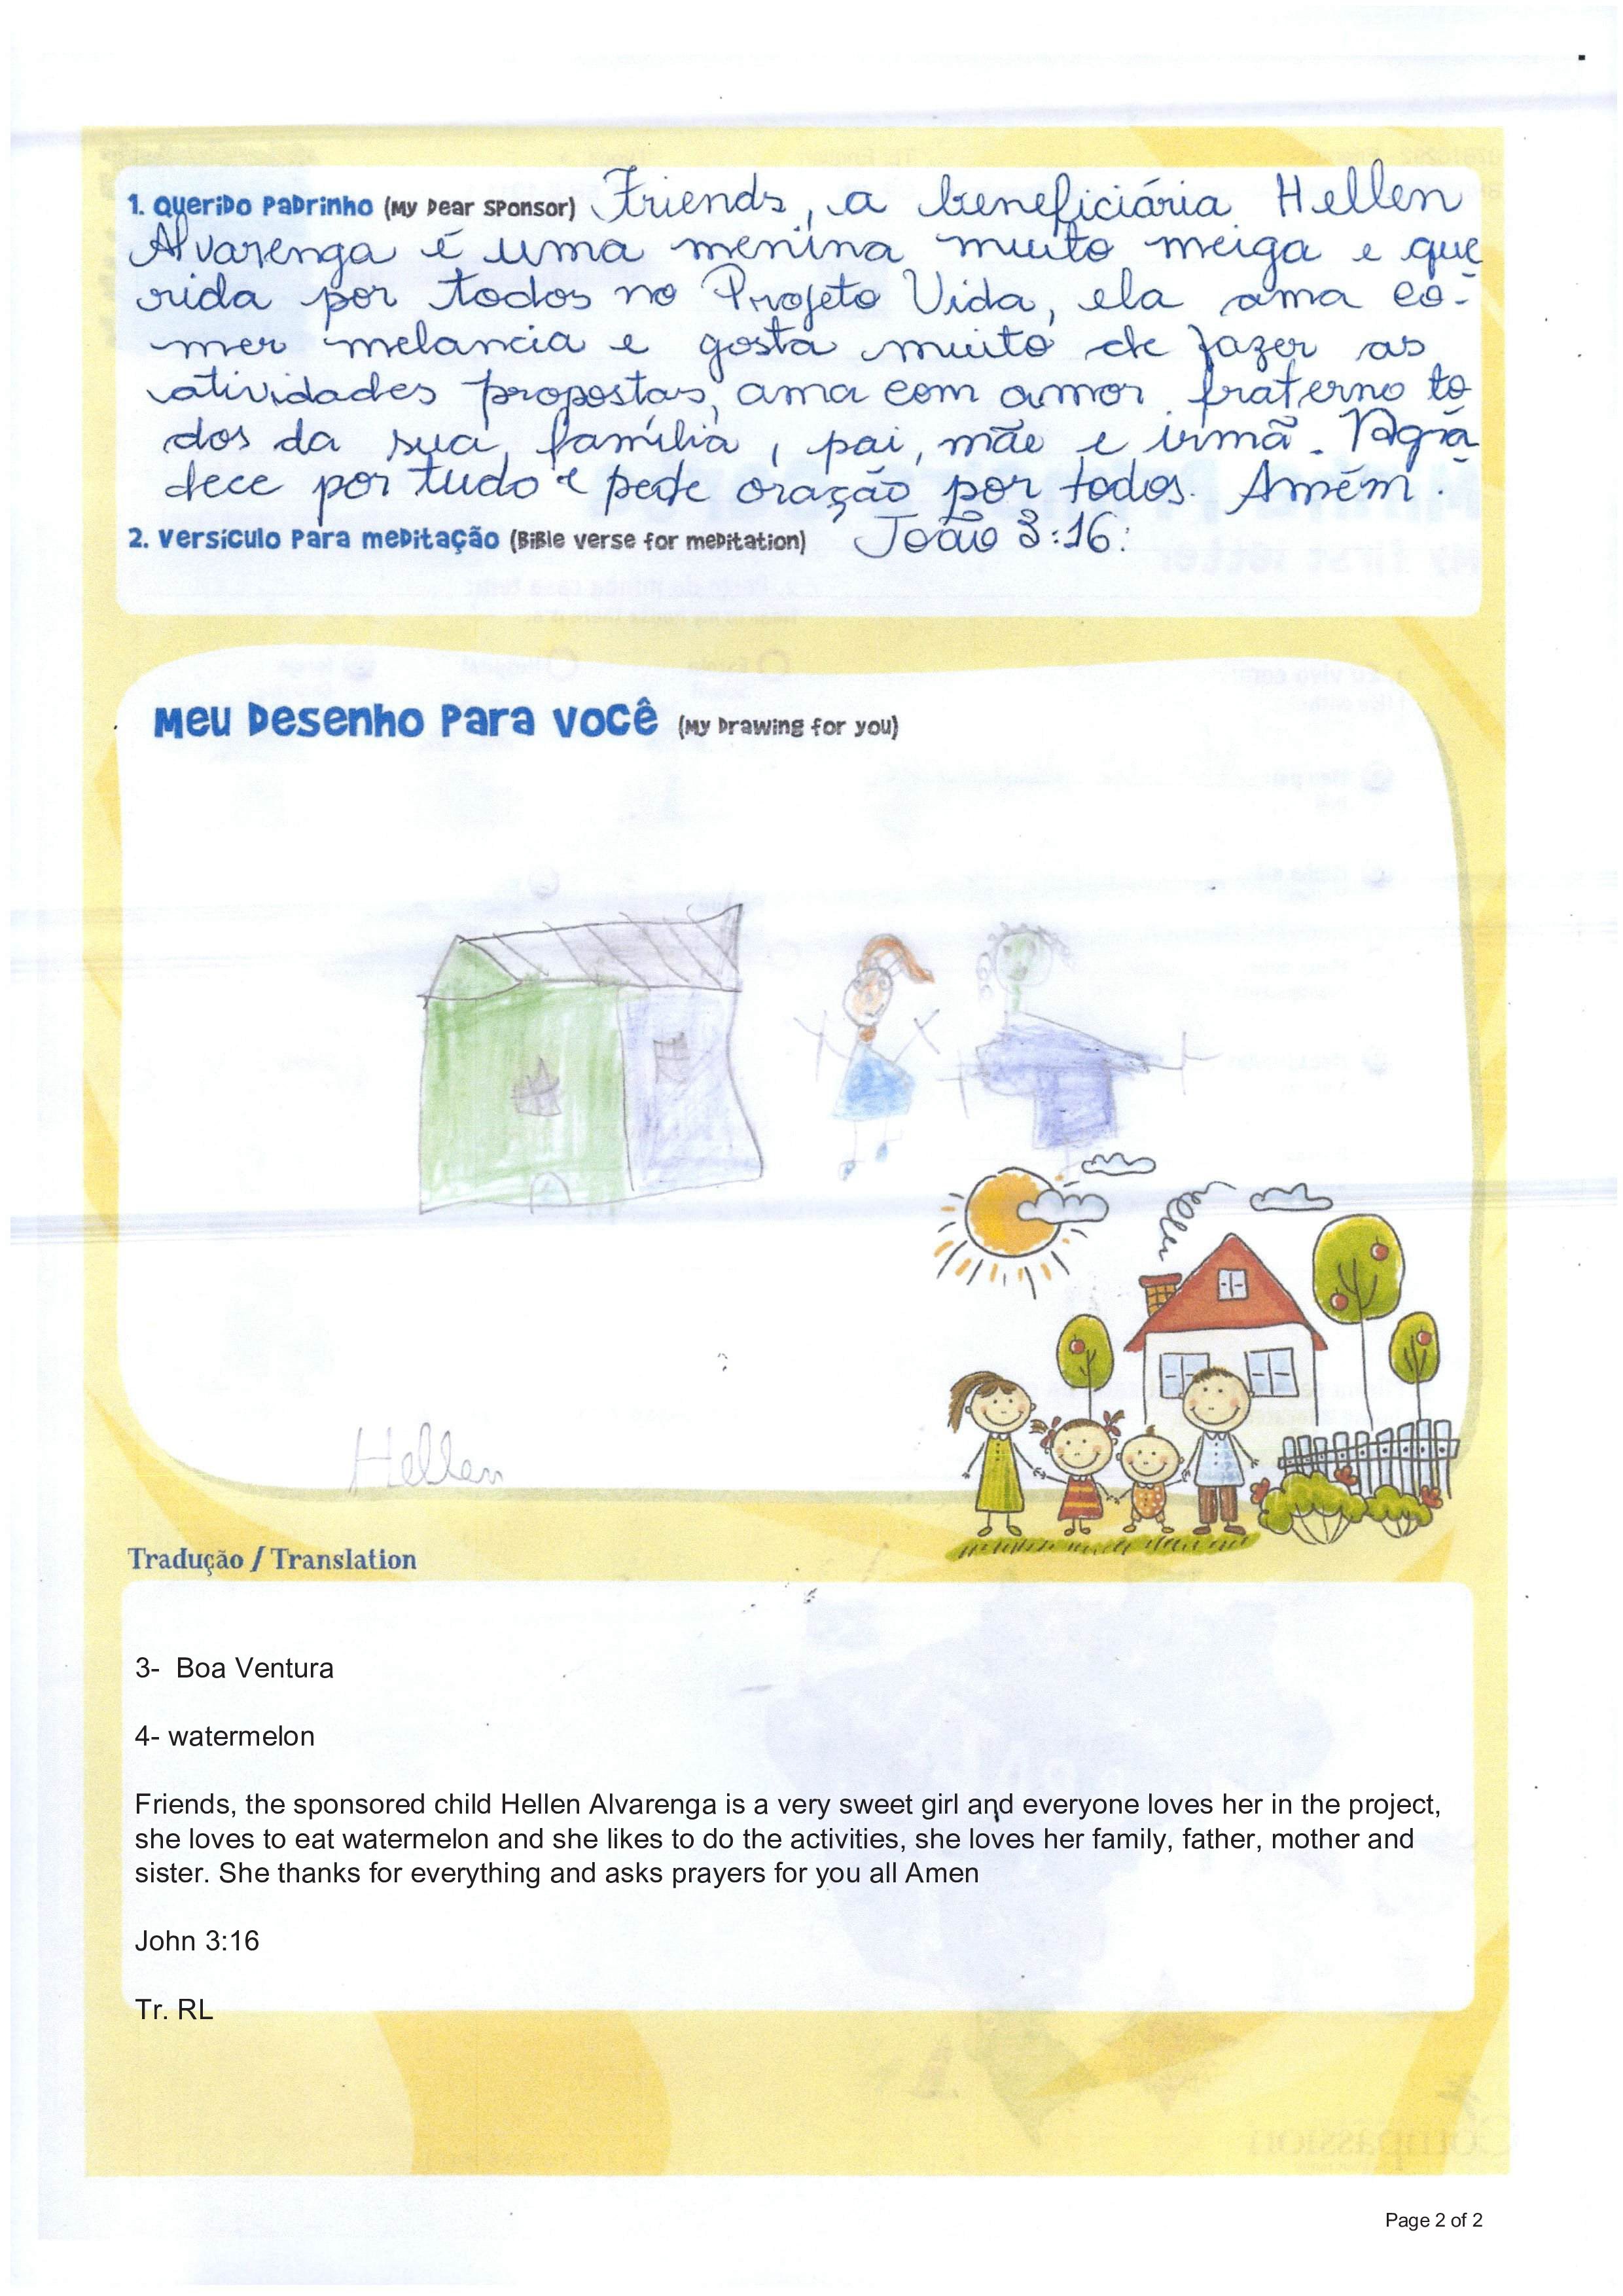 1. Querido Padrinho (My Dear Sponsor) Friends, a beneficiária Hellen
Alvarenga é uma menina muito meiga e que
rida por todos no Projeto Vida, ela ama co-
mer melancia e gosta muito de fazer as
atividades propostas, ama com amor fraterno to
dos da sua família, pai, mãe e irmã. Agra
dece por tudo e pede oração por todos. Amém.
2. Versículo para meditação (Bible verse for meditation) João 3:16.
Meu Desenho Para Você (My Drawing for you)
Hellen
Tradução / Translation
3- Boa Ventura
4- watermelon
Friends, the sponsored child Hellen Alvarenga is a very sweet girl and everyone loves her in the project,
she loves to eat watermelon and she likes to do the activities, she loves her family, father, mother and
sister. She thanks for everything and asks prayers for you all Amen
John 3:16
Tr. RL
Page 2 of 2